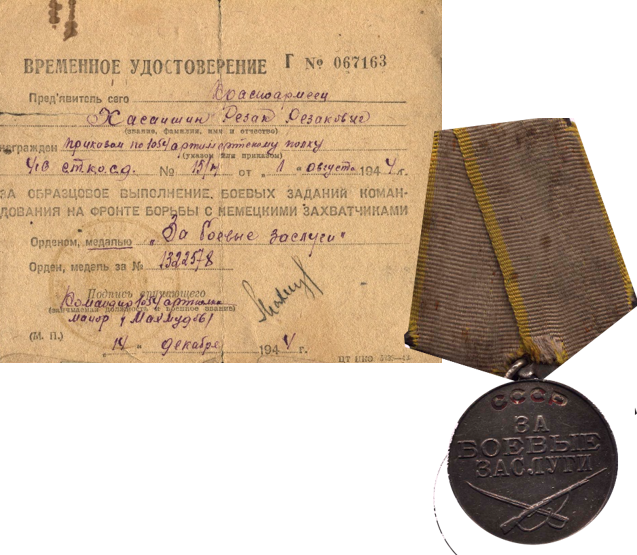 ВРЕМЕННОЕ УДОСТОВЕРЕНИЕ Г № 067163
Пред'явитель сего Красноармеец
Резак Резакович
(звание, фамилия, имя и отчество)
награжден приказом по 1054 артминометному полку
(указом или приказом)
№ 15/н от „1" август 1944 г.
ЗА ОБРАЗЦОВОЕ ВЫПОЛНЕНИЕ БОЕВЫХ ЗАДАНИЙ КОМАН-
ДОВАНИЯ НА ФРОНТЕ БОРЬБЫ С НЕМЕЦКИМИ ЗАХВАТЧИКАМИ
Орденом, медалью „За боевые заслуги"
Орден, медаль за № 1322578
Подпись
Командир 1054
майор (Махмудов)
(М. П.) 14 „ декабря 1944 г.
СССР
ЗА
БОЕВЫЕ
ЗАСЛУГИ